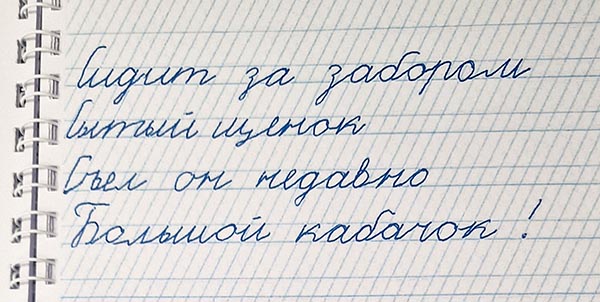 Сидит за забором
Сытый щенок
Съел он недавно
Большой кабачок!